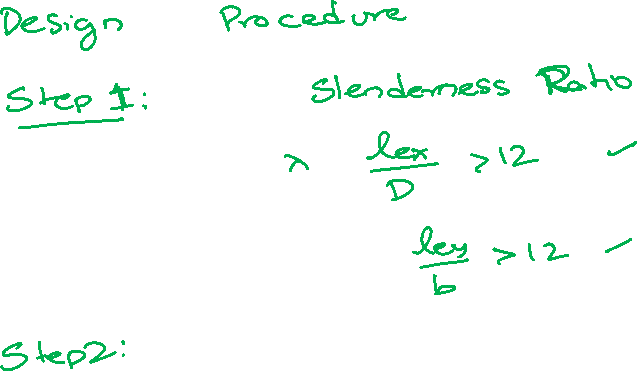 Design Procedure
Step 1: Slenderness Ratio
λ lex/D >12 ✓
ley/b >12 ✓
Step2: